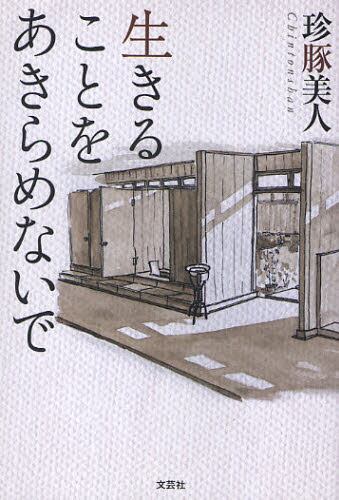 珍豚美人
Chintonshan
生きる
ことを
あきらめないで
文芸社